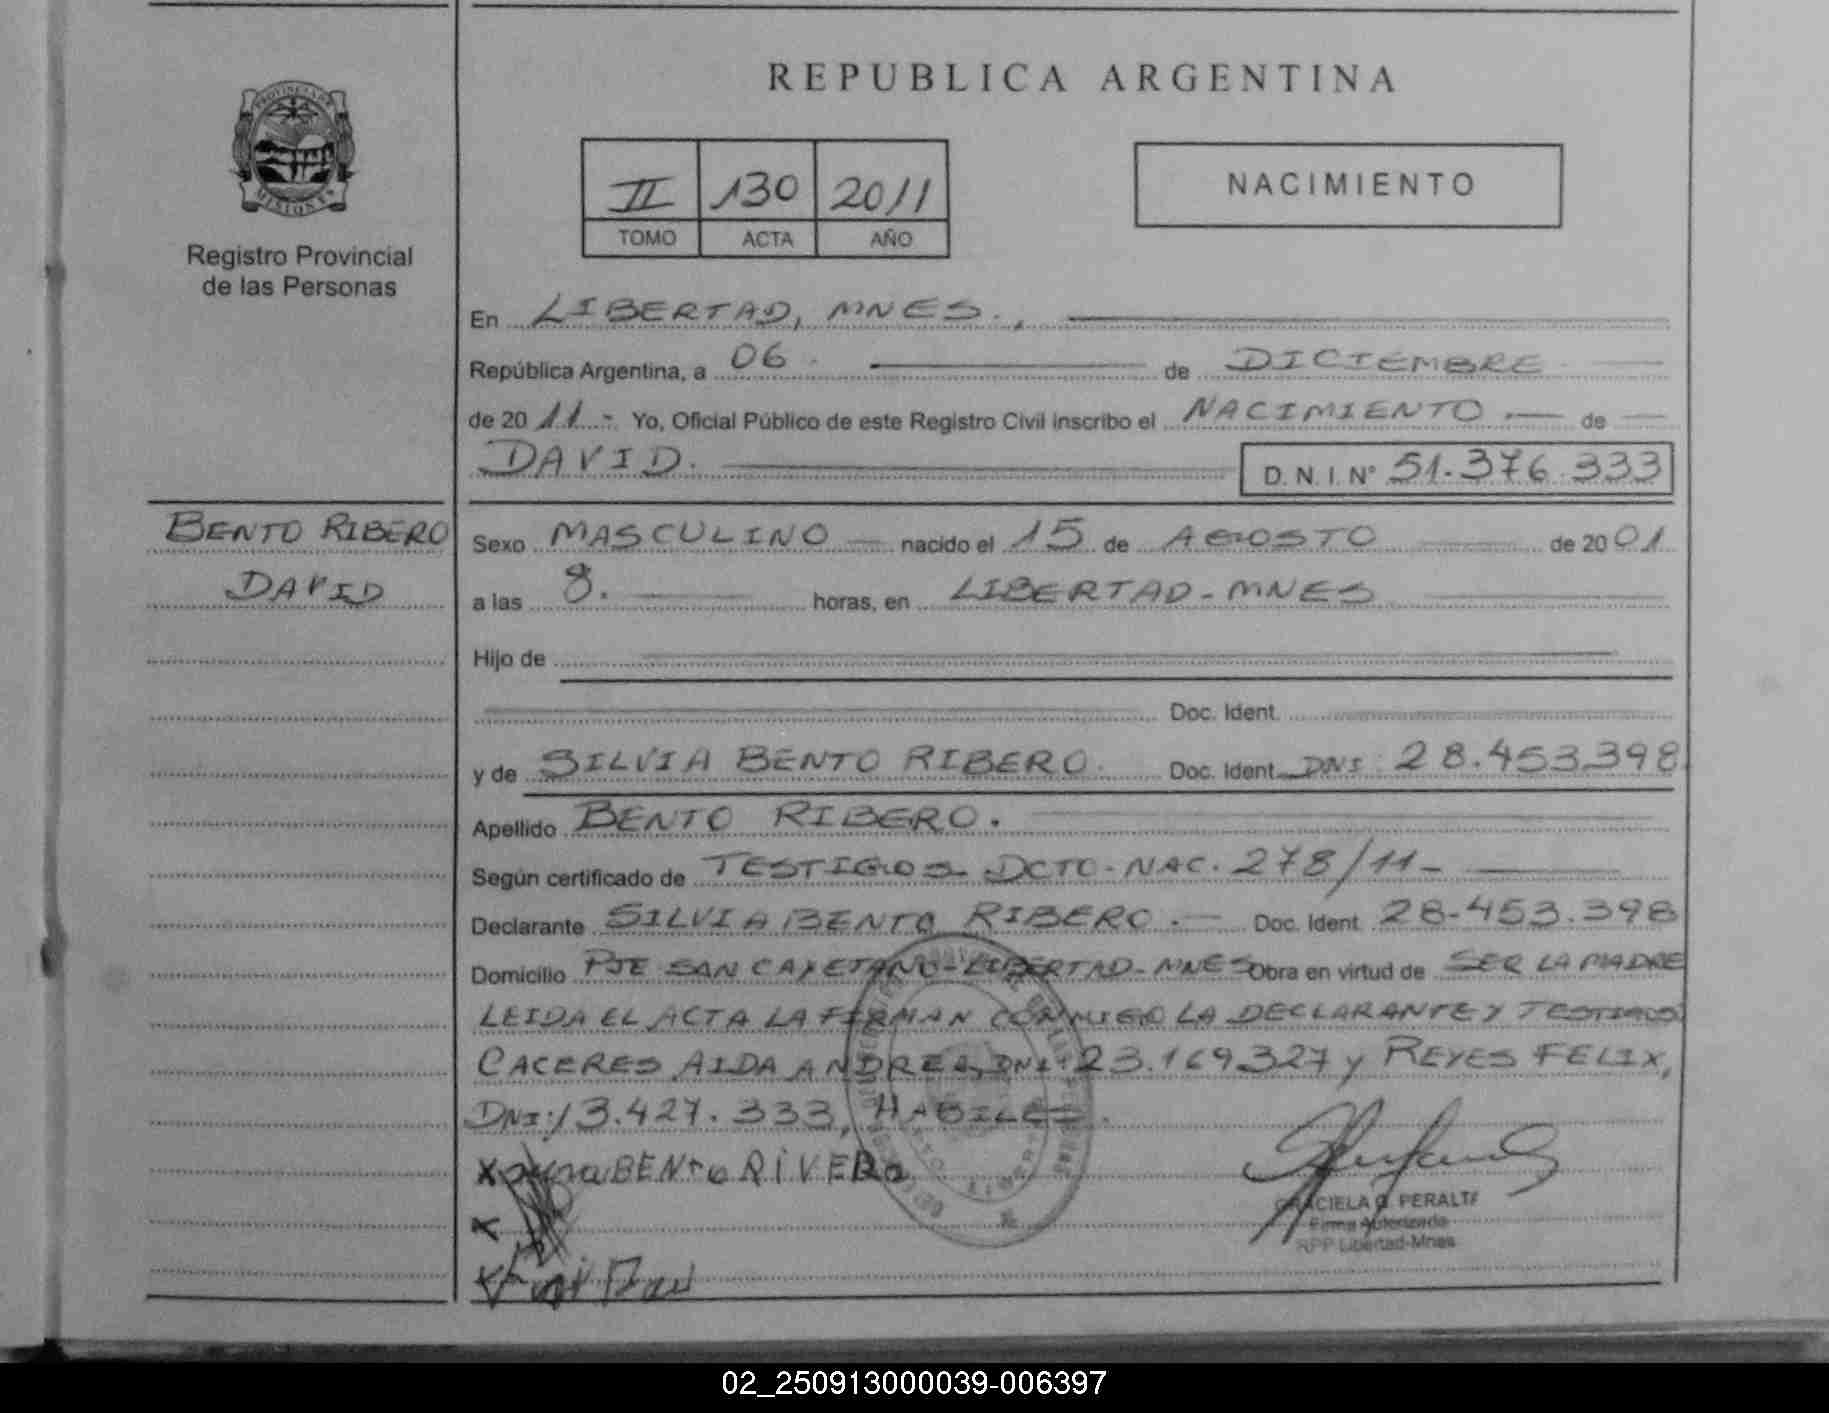 REPUBLICA ARGENTINA
PROVINCIA DE
MISIONES
Registro Provincial
de las Personas
II 130 2011
TOMO ACTA AÑO
NACIMIENTO
En LIBERTAD, MNES.,
República Argentina, a 06. de DICIEMBRE
de 20 11.- Yo, Oficial Público de este Registro Civil inscribo el NACIMIENTO.— de
DAVID. D.N.I.Nº 51.376.333
BENTO RIBERO
DAVID
Sexo MASCULINO nacido el 15 de AGOSTO de 20 01
a las 8. horas, en LIBERTAD-MNES
Hijo de
Doc. Ident.
y de SILVIA BENTO RIBERO. Doc. Ident. DNI: 28.453.398
Apellido BENTO RIBERO.
Según certificado de TESTIGOS DCTO-NAC. 278/11-
Declarante SILVIA BENTO RIBERO.— Doc. Ident. 28-453.398
Domicilio PJE SAN CAYETANO-LIBERTAD-MNES Obra en virtud de SER LA MADRE
LEIDA EL ACTA LA FIRMAN CONMIGO LA DECLARANTE Y TESTIGOS
CACERES AIDA ANDREA, DNI: 23.169.327 y REYES FELIX,
DNI: 13.427.333, HABILES.
X BENTO RIVERO
X
X
GRACIELA G. PERALTA
Firma Autorizada
RPP Libertad-Mnes
02_250913000039-006397